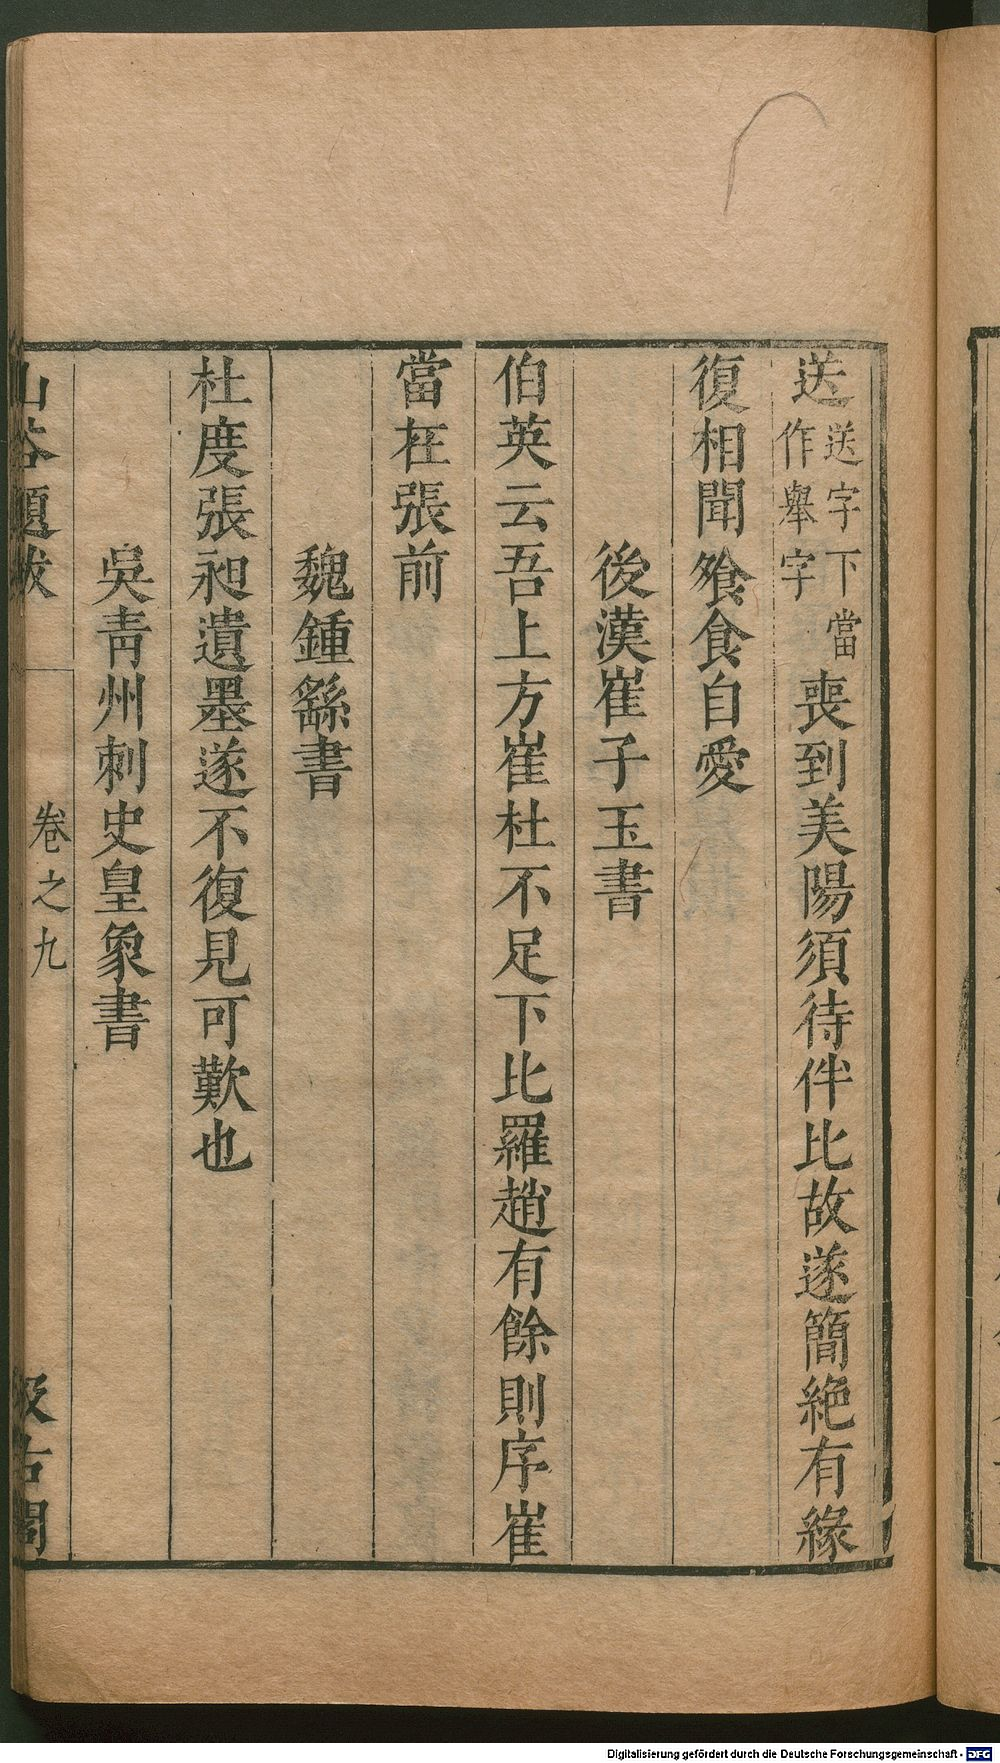 送送字下當作舉字喪到美陽須待伴比故遂簡絶有緣
復相聞飧食自愛
後漢崔子玉書
伯英云吾上方崔杜不足下比羅趙有餘則序崔
當在張前
魏鍾繇書
杜度張昶遺墨遂不復見可歎也
吳青州刺史皇象書
山谷題跋
卷之九
汲古閣
Digitalisierung gefördert durch die Deutsche Forschungsgemeinschaft - DFG